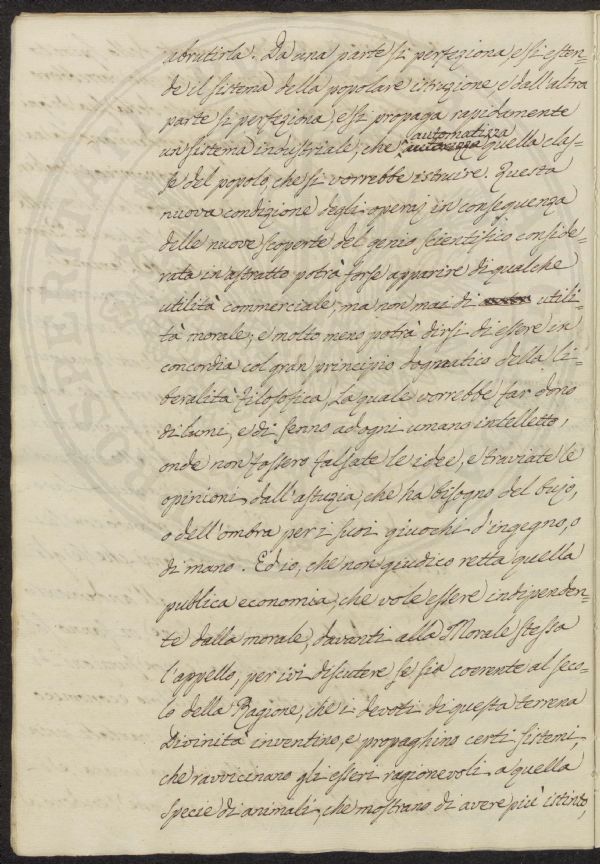 abrutirla. Da una parte si perfeziona e si esten=
de il sistema della popolare istruzione e dall'altra
parte si perfeziona, e si propaga rapidamente
un sistema industriale, che automatizza quella clas=
se del popolo, che si vorrebbe istruire. Questa
nuova condizione degli operaj in conseguenza
delle nuove scoperte del genio scientifico conside=
rata in astratto potrà forse apparire di qualche
utilità commerciale, ma non mai di utili=
tà morale; e molto meno potrà dirsi di essere in
concordia col gran principio dogmatico della li=
beralità filosofica, la quale vorrebbe far dono
di lumi, e di senno ad ogni umano intelletto,
onde non fossero falsate le idee, e traviate le
opinioni dall'astuzia, che ha bisogno del bujo,
o dell'ombra per i suoi giuochi d'ingegno, o
di mano. Ed io, che non giudico retta quella
publica economia, che vole essere independen=
te dalla morale, davanti alla Morale stessa
l'appello, per ivi discutere se sia coerente al seco=
lo della Ragione, che i devoti di questa terrena
Divinità inventino, e propaghino certi sistemi,
che ravvicinano gli esseri ragionevoli a quella
specie di animali, che mostrano di avere più istinto,